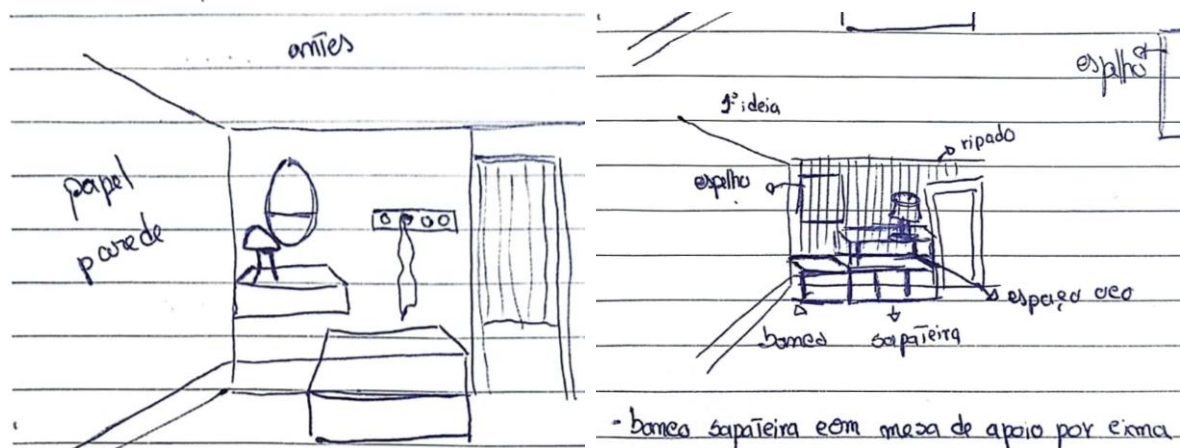 antes
papel
parede
espelho
1ª ideia
ripado
espelho
espaço oco
banco
sapateira
- banco sapateira com mesa de apoio por cima